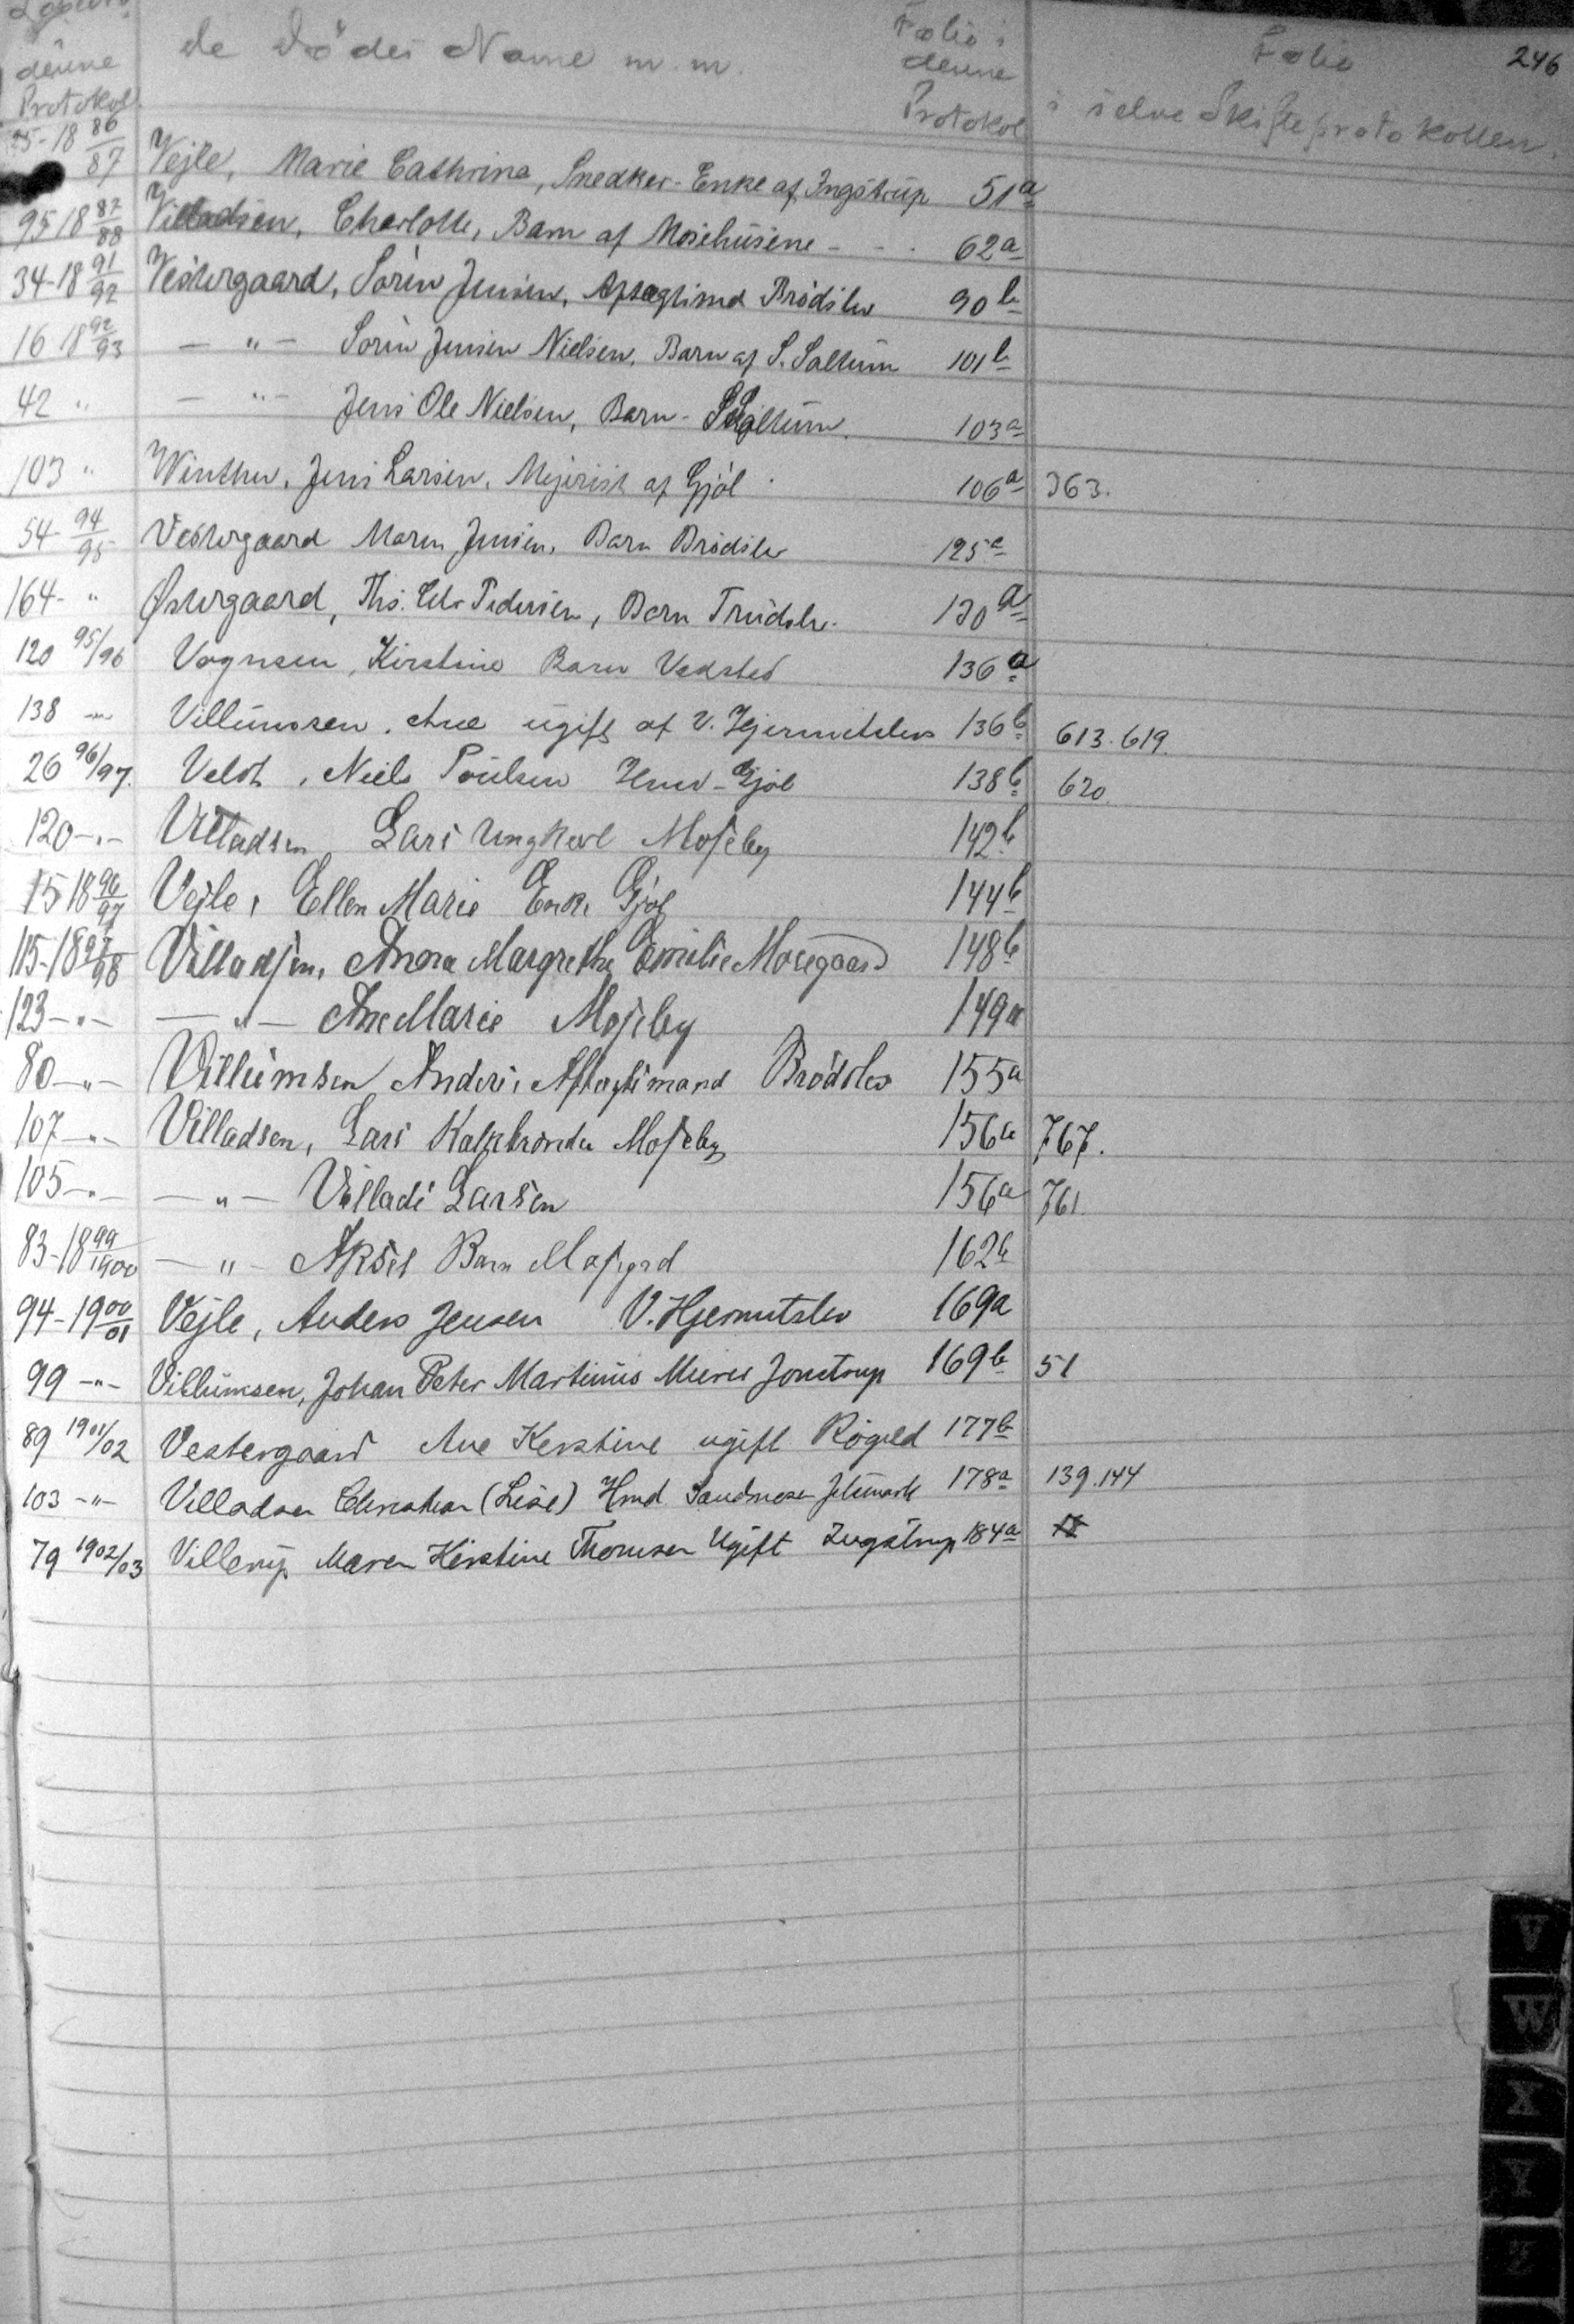 246
denne Protokol
de Dödes Navne m.m.
Folio i denne Protokol
Folio i selve Skifteprotokollen.
75-18 86/87 Vejle, Marie Cathrine, Snedker-Enke af Ingstrup 51a
95 18 87/88 Villadsen, Charlotte, Barn af Mosehusene - - . 62a
34-18 91/92 Vestergaard, Sören Jensen, Aftægtsmd Brödslev 90b
16 18 92/93 - " - Sören Jensen Nielsen, Barn af S. Saltum 101b
42 " - " - Jens Ole Nielsen, Barn - Saltum. 103a
103 " Winther, Jens Larsen, Mejerist af Gjöl 106a 363.
54- 94/95 Vestergaard Maren Jensen, Barn Brödslev 125a
164- " Østergaard, Ths. Pedersen, Barn Trudslev 130a
120 95/96 Vognsen, Kirstine Barn Vedsted 136a
138 - " - Villumsen, Ane ugift af V. Hjermitslev 136b 613.619.
26 96/97. Veldt, Niels Poulsen Hmd - Gjöl 138b 620.
120 - " - Villadsen Lars Ungkarl Moseby 142b
15 18 96/97 Vejle, Ellen Marie Enke Gjöl 144b
115-18 97/98 Villadsen, Anna Margrethe Emilie Mosegaard 148b
123 - " - - " - Ane Marie Moseby 149a
80 - " - Villumsen Anders, Aftægtsmand Brödslev 155a
107 - " - Villadsen, Lars Kalkbrænder Moseby 156a 767.
105 - " - - " - Villads Larsen 156a 761.
83-18 99/1900 - " - Aksel Barn Mosegrd 162b
94-19 00/01 Vejle, Anders Jensen V. Hjermitslev 169a
99 - " - Villumsen, Johan Peter Martinus Murer Jonstrup 169b 51
89 1901/02 Vestergaard Ane Kirstine ugift Rögild 177b
103 - " - Villadsen Christian (Lise) Hmd Sandmosen Jetsmark 178a 139.144
79 1902/03 Villerup Maren Kirstine Thomsen Ugift Ingstrup 184a
V
W
X
Y
Z